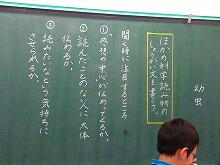 幼虫
ほかの科学読み物の
しょうかい文を書こう。
聞く時に注目するところ
①感想の中心が伝わってくるか。
②読んだことのない人に大体
伝わるか。
③読みたいなという気持ちに
させられるか。